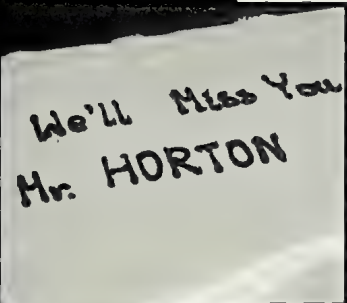 We'll Miss You
Mr. HORTON